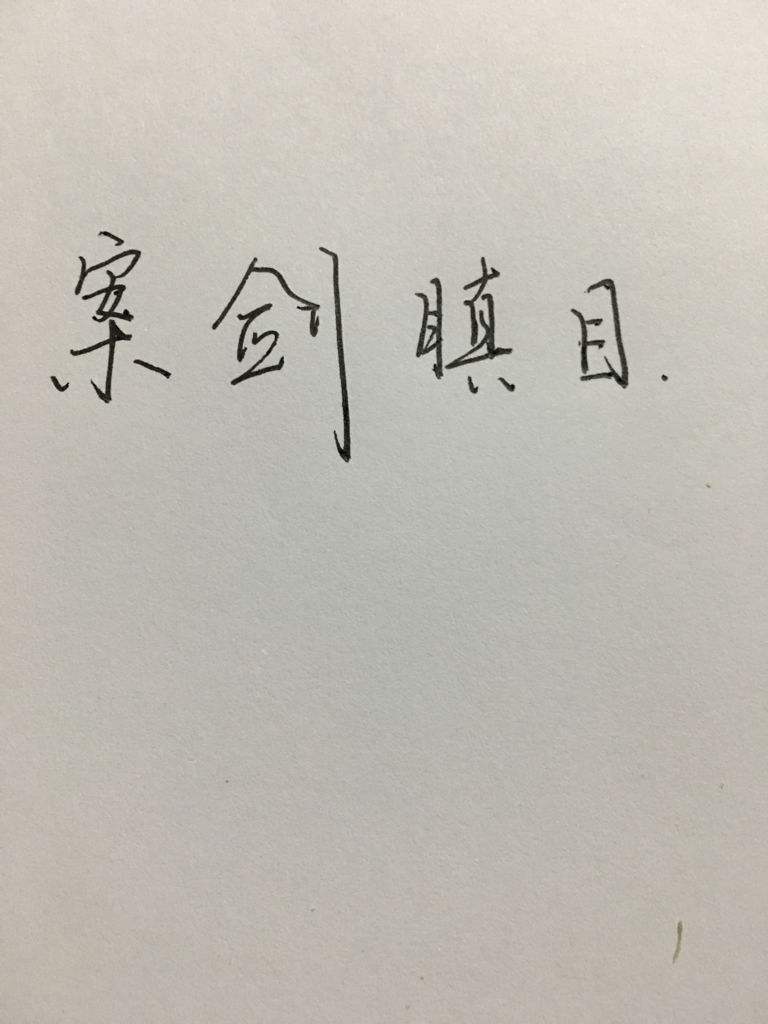 案剑瞋目.